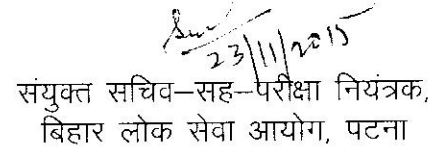 23/11/2015
संयुक्त सचिव–सह–परीक्षा नियंत्रक,
बिहार लोक सेवा आयोग, पटना